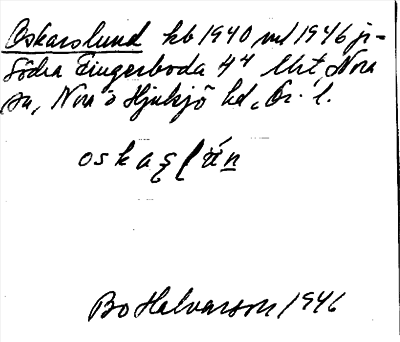 Oskarslund kb 1940 md 1946 js-
Södra Fingerboda 4⁴ Urt, Nora
sn, Nora o Hjulsjö hd, Ör. l.
oskaşlún
Bo Halvarson 1946